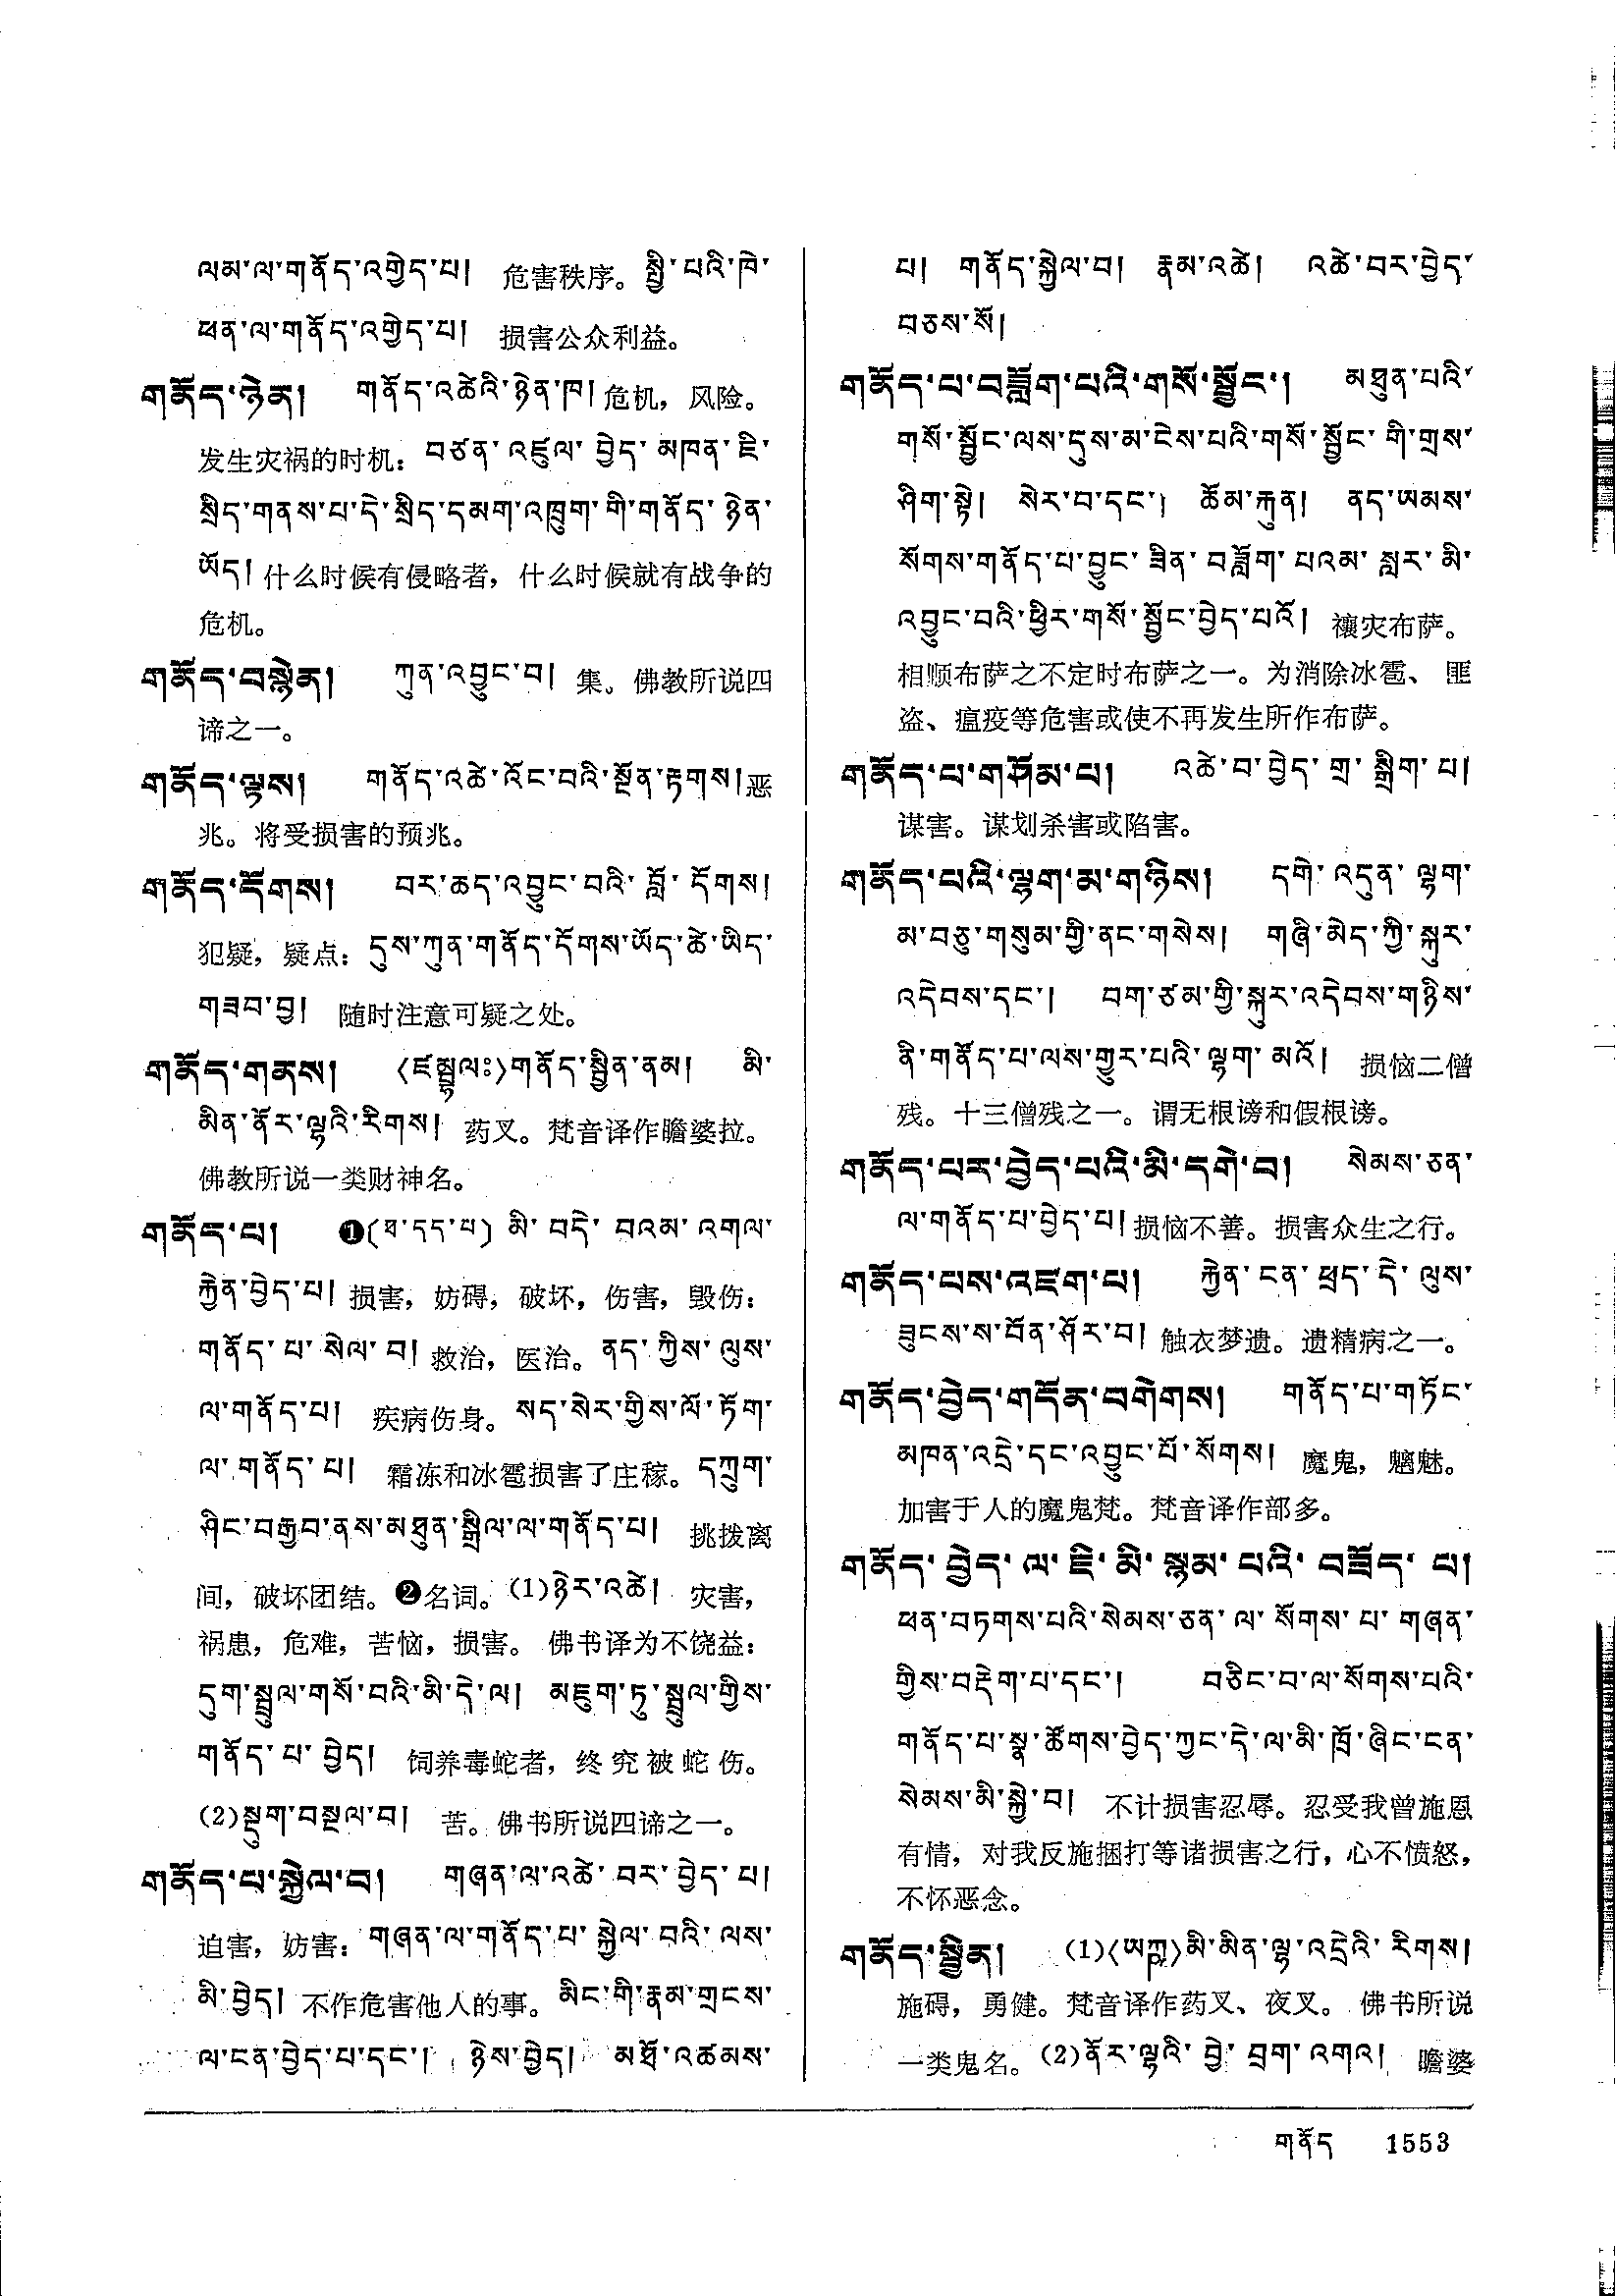 ལམ་ལ་གནོད་འགྱེད་པ།  危害秩序。སྤྱི་པའི་ཁེ་
ཕན་ལ་གནོད་འགྱེད་པ།  损害公众利益。
གནོད་ཉེན།  གནོད་འཚེའི་ཉེན་ཁ། 危机，风险。
发生灾祸的时机：བཙན་འཛུལ་བྱེད་མཁན་ཇི་
སྲིད་གནས་པ་དེ་སྲིད་དམག་འཁྲུག་གི་གནོད་ཉེན་
ཡོད། 什么时候有侵略者，什么时候就有战争的
危机。
གནོད་བསྟེན།  ཀུན་འབྱུང་བ། 集。佛教所说四
谛之一。
གནོད་ལྟས།  གནོད་འཚེ་འོང་བའི་སྔོན་རྟགས། 恶
兆。将受损害的预兆。
གནོད་དོགས།  བར་ཆད་འབྱུང་བའི་བློ་དོགས།
犯疑，疑点：དུས་ཀུན་གནོད་དོགས་ཡོད་ཚེ་ཡིད་
གཟབ་བྱ།  随时注意可疑之处。
གནོད་གནས།  〈ཛམྦྷལཿ〉གནོད་སྦྱིན་ནམ།  མི་
མིན་ནོར་ལྷའི་རིགས། 药叉。梵音译作瞻婆拉。
佛教所说一类财神名。
གནོད་པ།  ❶(ཐ་དད་པ) མི་བདེ་བའམ་འགལ་
རྐྱེན་བྱེད་པ། 损害，妨碍，破坏，伤害，毁伤：
གནོད་པ་སེལ་བ། 救治，医治。ནད་ཀྱིས་ལུས་
ལ་གནོད་པ།  疾病伤身。སད་སེར་གྱིས་ལོ་ཏོག་
ལ་གནོད་པ།  霜冻和冰雹损害了庄稼。དཀྲུག་
ཤིང་བརྒྱབ་ནས་མཐུན་སྒྲིལ་ལ་གནོད་པ།  挑拨离
间，破坏团结。❷名词。(1)ཉེར་འཚེ།  灾害，
祸患，危难，苦恼，损害。佛书译为不饶益：
དུག་སྦྲུལ་གསོ་བའི་མི་དེ་ལ།  མཇུག་ཏུ་སྦྲུལ་གྱིས་
གནོད་པ་བྱེད།  饲养毒蛇者，终究被蛇伤。
(2)སྡུག་བསྔལ་བ།  苦。佛书所说四谛之一。
གནོད་པ་སྐྱེལ་བ།  གཞན་ལ་འཚེ་བར་བྱེད་པ།
迫害，妨害：གཞན་ལ་གནོད་པ་སྐྱེལ་བའི་ལས་
མི་བྱེད། 不作危害他人的事。མིང་གི་རྣམ་གྲངས་
ལ་ངན་བྱེད་པ་དང་།  ཉེས་བྱེད།  མཐོ་འཚམས་
པ།  གནོད་སྐྱེལ་བ།  རྣམ་འཚེ།  འཚེ་བར་བྱེད་
བཅས་སོ།
གནོད་པ་བཟློག་པའི་གསོ་སྦྱོང་།  མཐུན་པའི་
གསོ་སྦྱོང་ལས་དུས་མ་ངེས་པའི་གསོ་སྦྱོང་གི་གྲས་
ཤིག་སྟེ།  སེར་བ་དང་།  ཆོམ་རྐུན།  ནད་ཡམས་
སོགས་གནོད་པ་བྱུང་ཟིན་བཟློག་པའམ་སླར་མི་
འབྱུང་བའི་ཕྱིར་གསོ་སྦྱོང་བྱེད་པའོ།  禳灾布萨。
相顺布萨之不定时布萨之一。为消除冰雹、匪
盗、瘟疫等危害或使不再发生所作布萨。
གནོད་པ་གཤོམ་པ།  འཚེ་བ་བྱེད་གྲ་སྒྲིག་པ།
谋害。谋划杀害或陷害。
གནོད་པའི་ལྷག་མ་གཉིས།  དགེ་འདུན་ལྷག་
མ་བཅུ་གསུམ་གྱི་ནང་གསེས།  གཞི་མེད་ཀྱི་སྐུར་
འདེབས་དང་།  བག་ཙམ་གྱི་སྐུར་འདེབས་གཉིས་
ནི་གནོད་པ་ལས་གྱུར་པའི་ལྷག་མའོ།  损恼二僧
残。十三僧残之一。谓无根谤和假根谤。
གནོད་པར་བྱེད་པའི་མི་དགེ་བ།  སེམས་ཅན་
ལ་གནོད་པ་བྱེད་པ། 损恼不善。损害众生之行。
གནོད་པས་འཛག་པ།  རྐྱེན་ངན་ཕྲད་དེ་ལུས་
ཟུངས་ས་བོན་ཤོར་བ། 触衣梦遗。遗精病之一。
གནོད་བྱེད་གདོན་བགེགས།  གནོད་པ་གཏོང་
མཁན་འདྲེ་དང་འབྱུང་པོ་སོགས།  魔鬼，魑魅。
加害于人的魔鬼梵。梵音译作部多。
གནོད་བྱེད་ལ་ཇི་མི་སྙམ་པའི་བཟོད་པ།
ཕན་བཏགས་པའི་སེམས་ཅན་ལ་སོགས་པ་གཞན་
གྱིས་བརྡེག་པ་དང་།  བཅིང་བ་ལ་སོགས་པའི་
གནོད་པ་སྣ་ཚོགས་བྱེད་ཀྱང་དེ་ལ་མི་ཁྲོ་ཞིང་ངན་
སེམས་མི་སྐྱེ་བ།  不计损害忍辱。忍受我曾施恩
有情，对我反施捆打等诸损害之行，心不愤怒，
不怀恶念。
གནོད་སྦྱིན།  (1)〈ཡཀྵ〉མི་མིན་ལྷ་འདྲེའི་རིགས།
施碍，勇健。梵音译作药叉、夜叉。佛书所说
一类鬼名。(2)ནོར་ལྷའི་བྱེ་བྲག་འགའ།  瞻婆
གནོད  1553